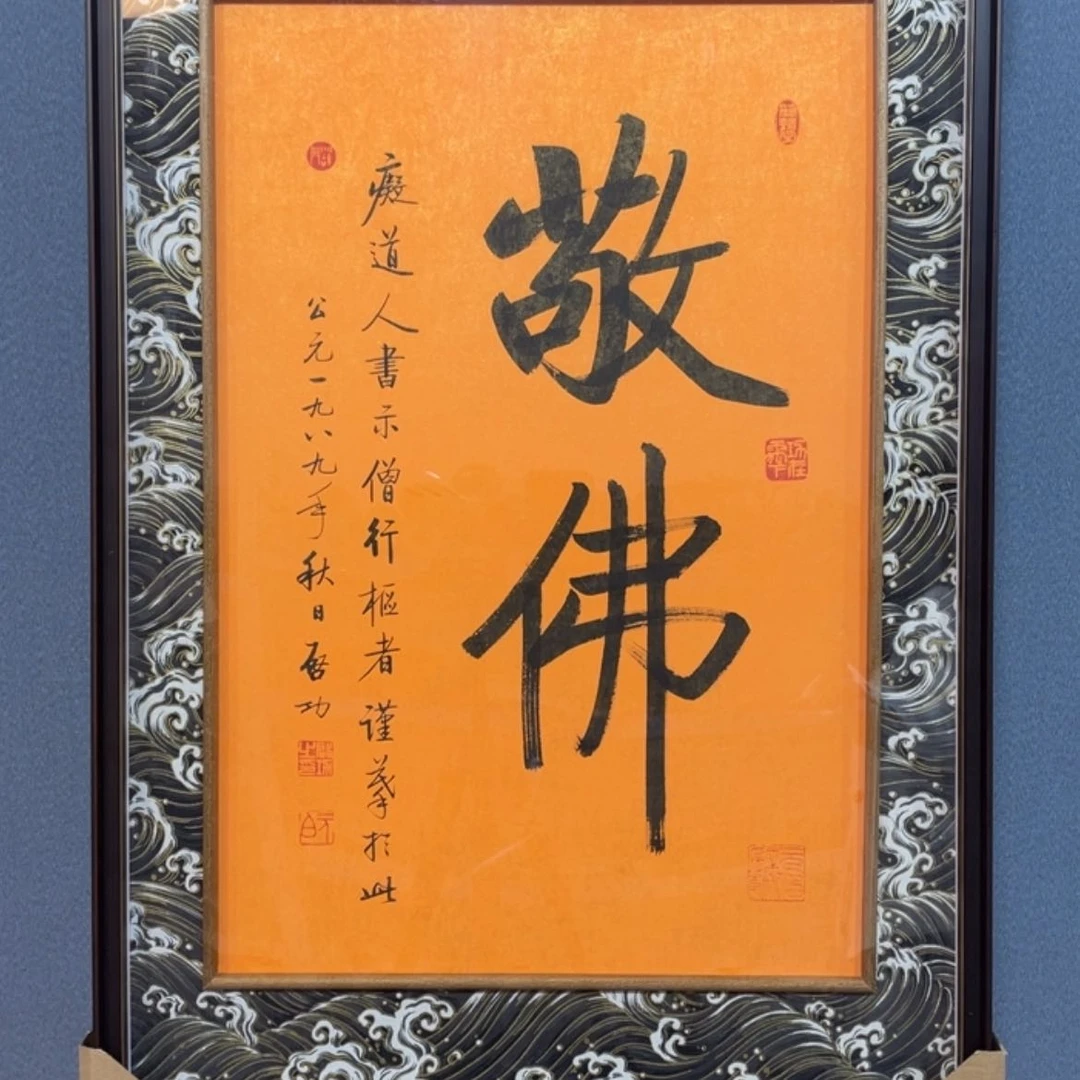 敬佛
癡道人書示僧行樞者謹摹於此
公元一九八九年秋日啓功